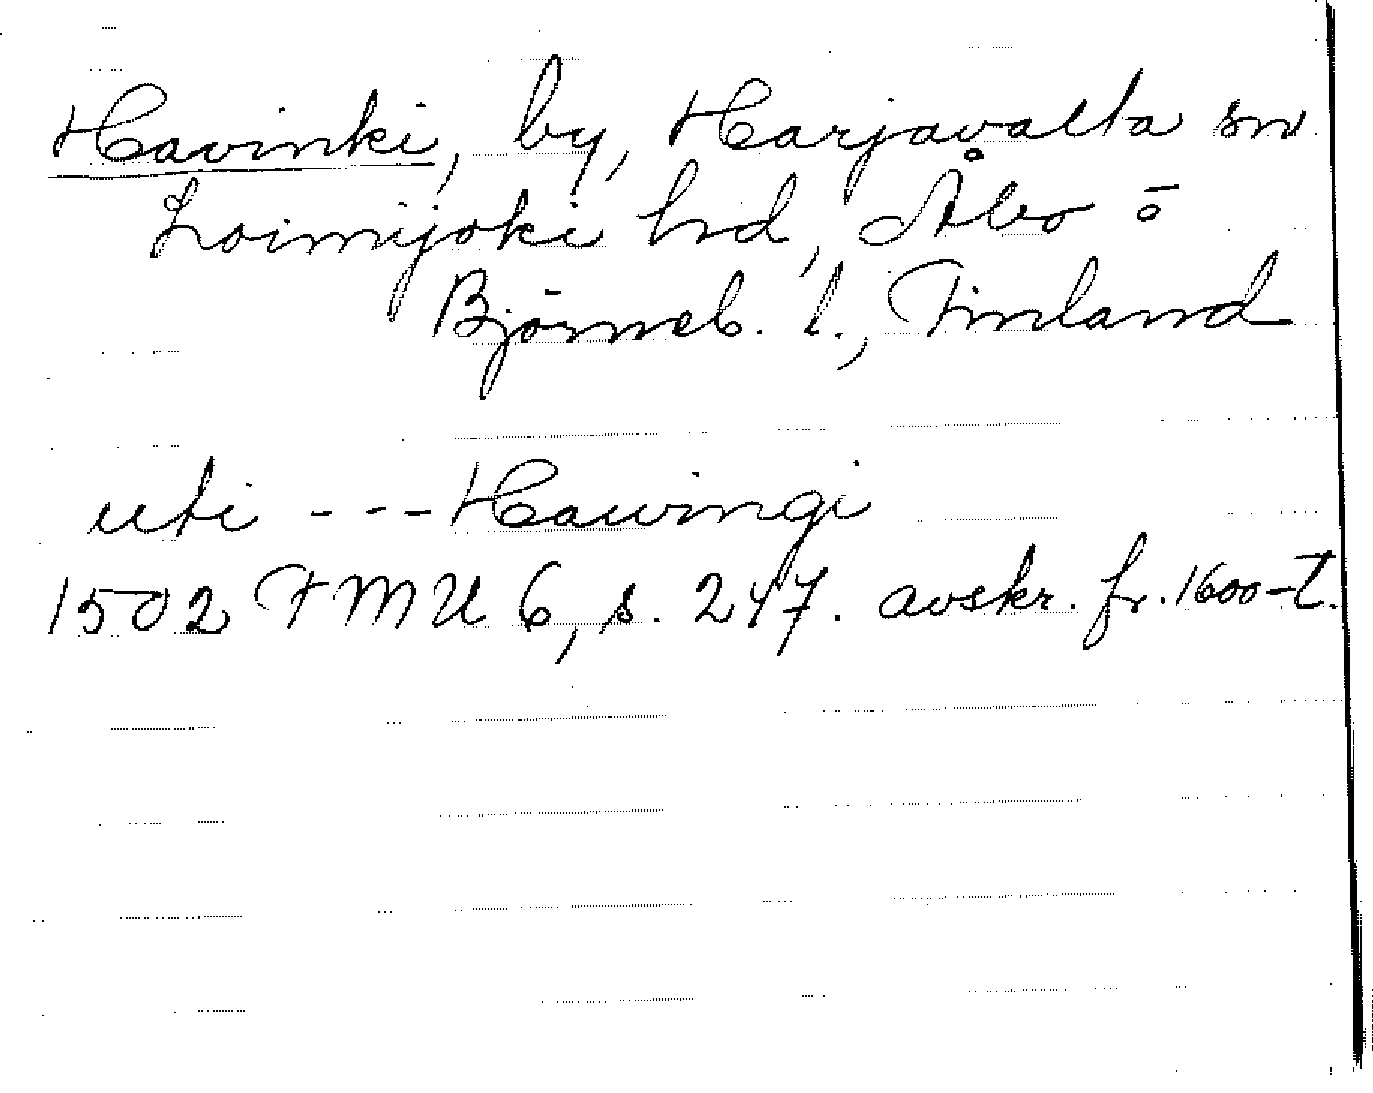 Havinki, by, Harjavalta sn
Loimijoki hd, Åbo ō
Björneb. l., Finland
uti --- Hawingi
1502 FMU 6, s. 247. avskr. fr. 1600-t.